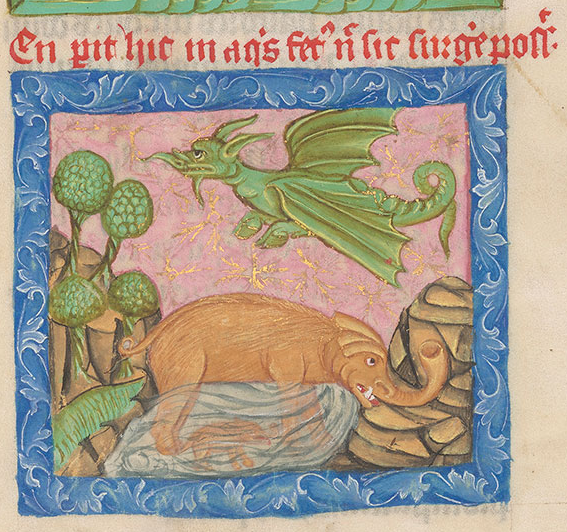 En ꝑit hic in aq's fet' n̄ sic surg'e poss'.